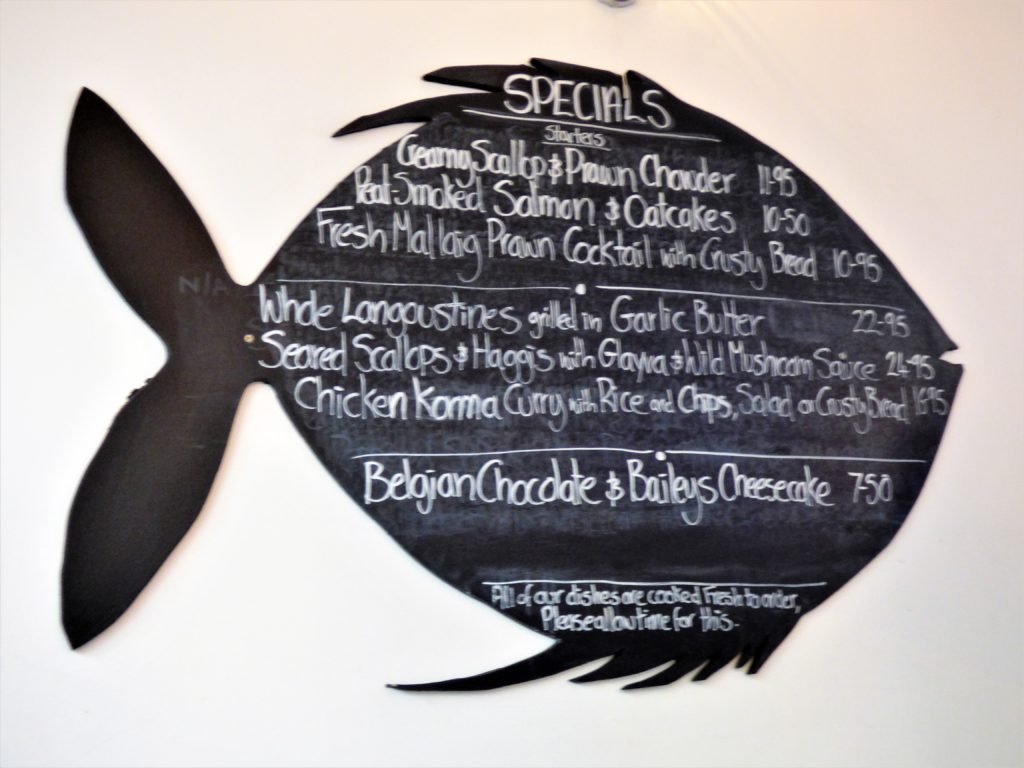 SPECIALS
Starters
Creamy Scallop & Prawn Chowder 11-95
Peat-Smoked Salmon & Oatcakes 10-50
Fresh Mallaig Prawn Cocktail with Crusty Bread 10-95
N/A
Whole Langoustines grilled in Garlic Butter 22-95
Seared Scallops & Haggis with Glayva & Wild Mushroom Sauce 24-95
Chicken Korma Curry with Rice and Chips, Salad, or Crusty Bread
Belgian Chocolate & Baileys Cheesecake 7-50
All of our dishes are cooked Fresh to order,
Please allow time for this.